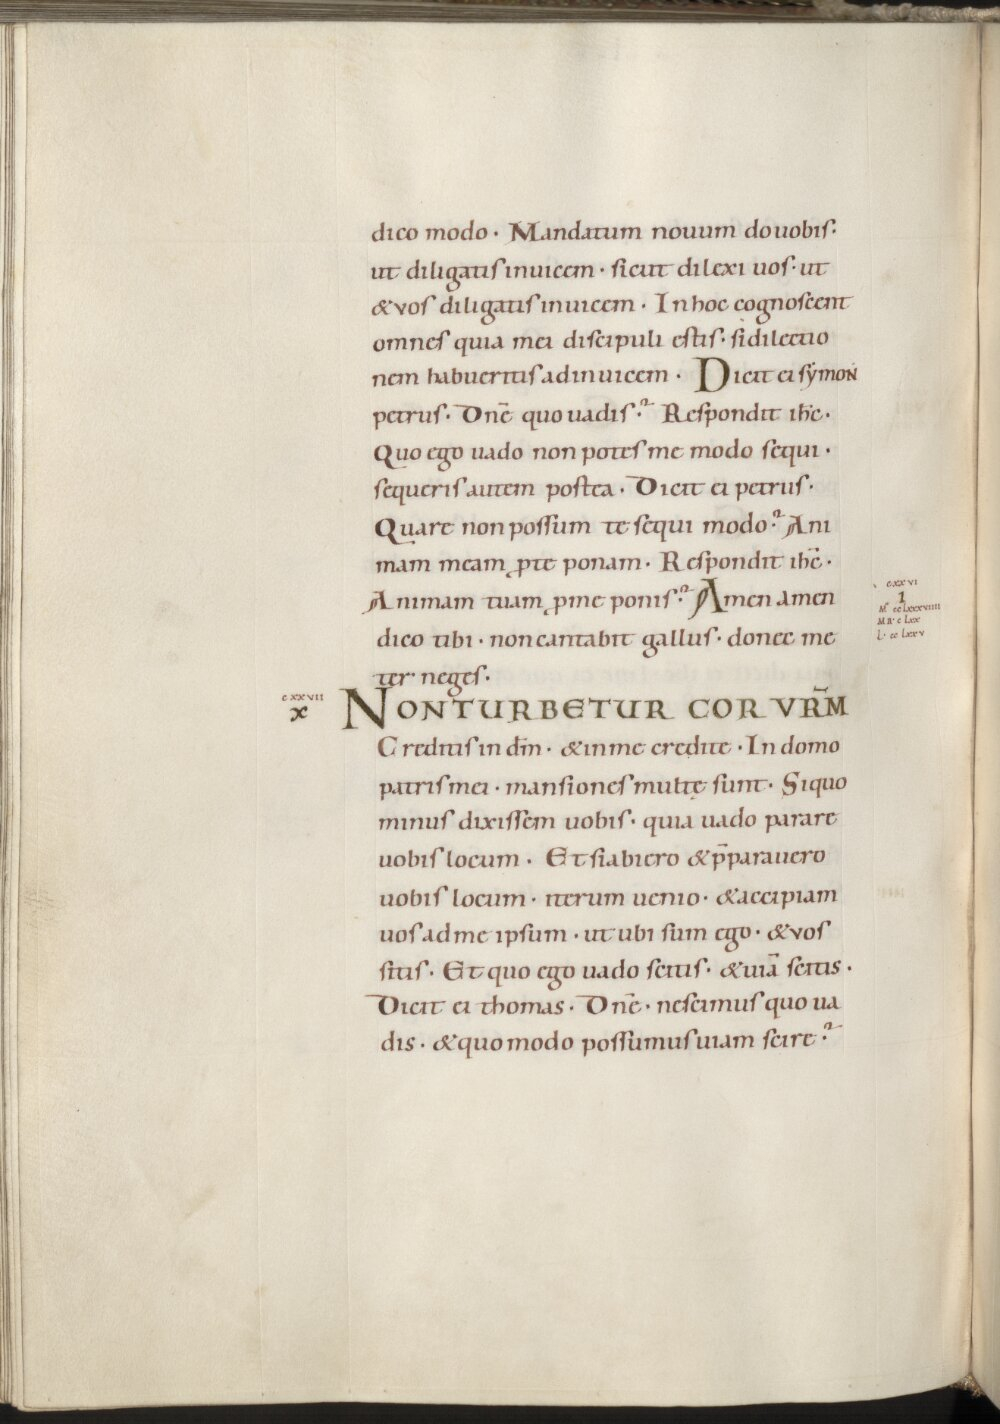 dico modo · Mandatum nouum do uobis·
ut diligatis inuicem · sicut dilexi uos · ut
& vos diligatis inuicem · In hoc cognoscent
omnes quia mei discipuli estis · si dilectio
nem habueritis ad inuicem · Dicit ei symon
petrus · Dnē quo uadis ? Respondit ihc̄ ·
Quo ego uado non potes me modo sequi ·
sequeris autem postea · Dicit ei petrus ·
Quare non possum te sequi modo ? Ani
mam meam ꝓ te ponam · Respondit ihc̄ ·
Animam tuam ꝓ me ponis ? Amen amen
dico tibi · non cantabit gallus · donec me
ter neges ·
cxxvi
1
Mͭ cclxxxviiii
MR· clxx
L· cclxxv
cxxvii
x
NON TURBETUR COR VR̄M
Creditis in dm̄ · & in me credite · In domo
patris mei · mansiones multę sunt · Siquo
minus dixissem uobis · quia uado parare
uobis locum · Et si abiero & p̄parauero
uobis locum · iterum uenio · & accipiam
uos ad me ipsum · ut ubi sum ego · & vos
sitis · Et quo ego uado scitis · & uiā scitis ·
Dicit ei thomas · Dnē · nescimus quo ua
dis · & quomodo possumus uiam scire ?